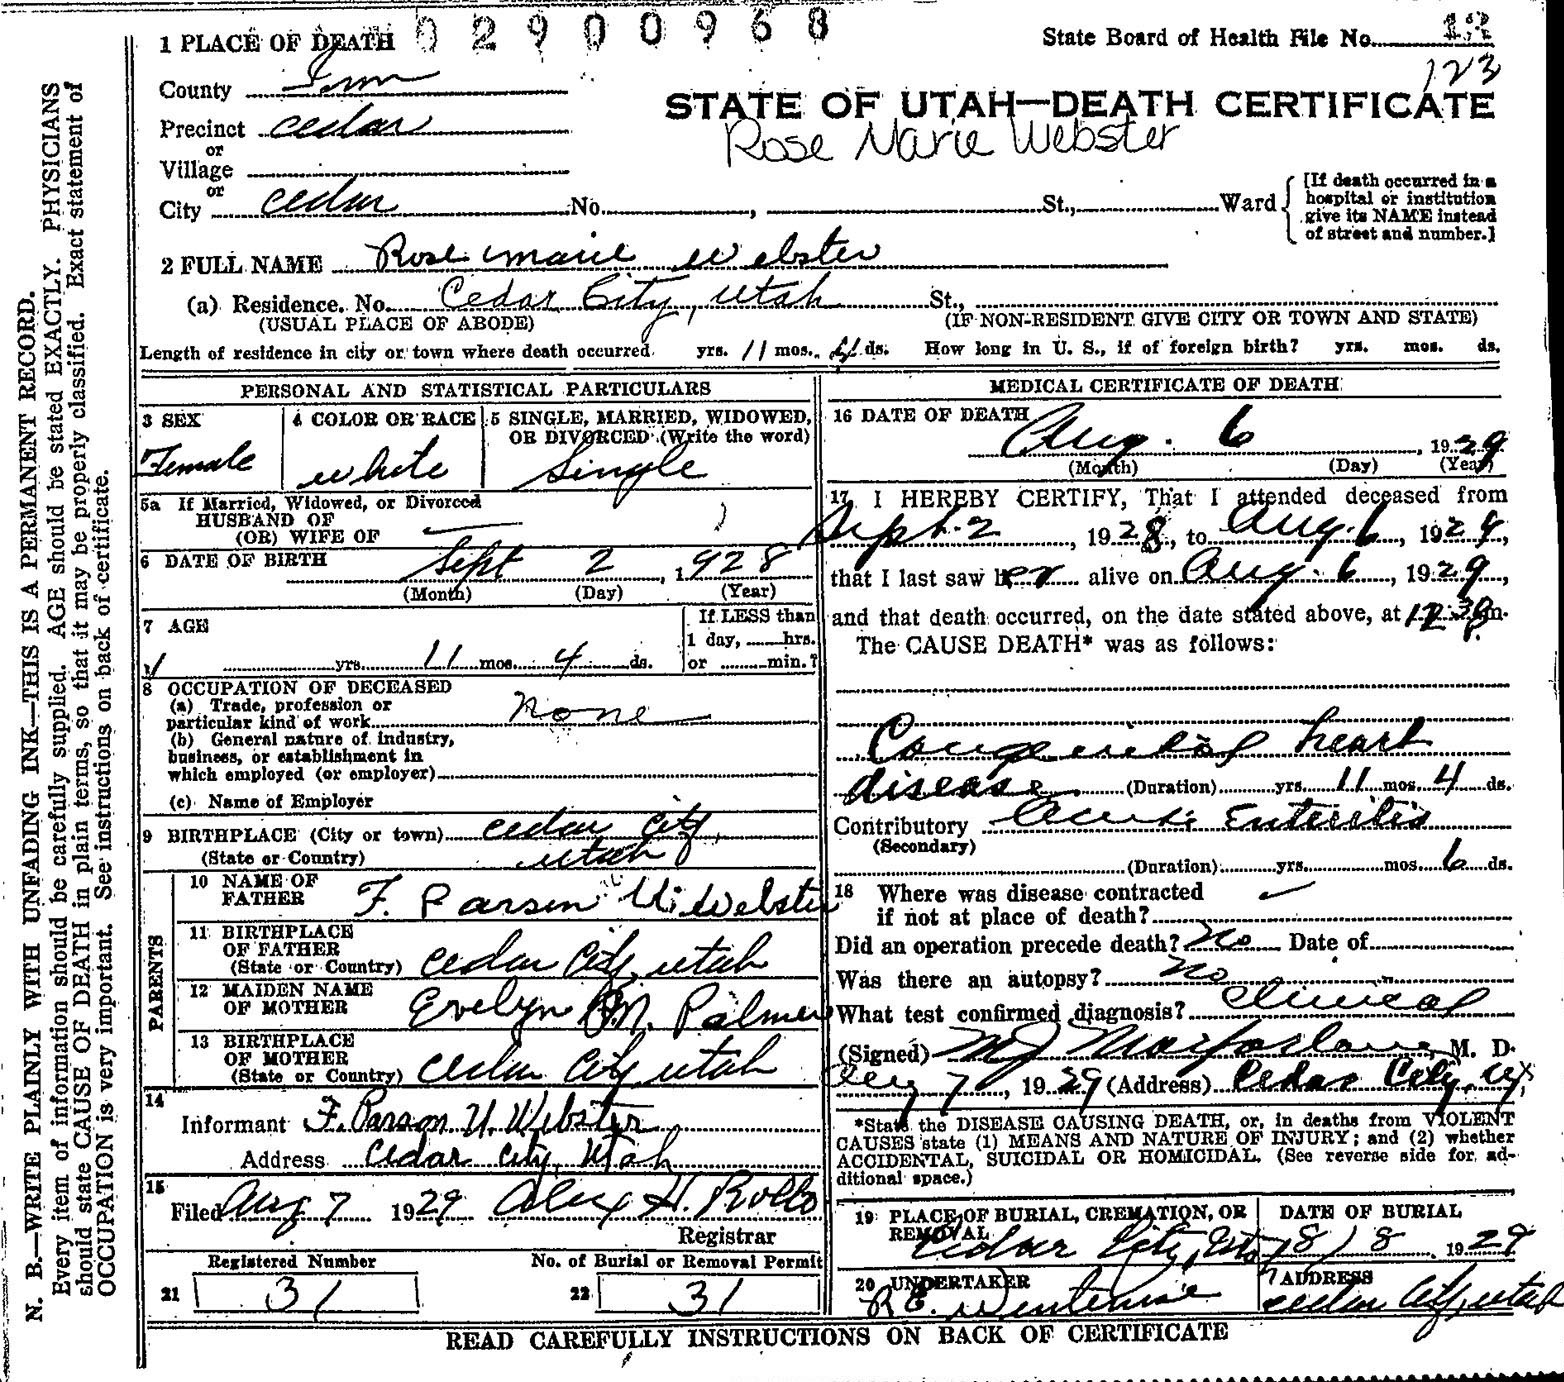 02900968
1 PLACE OF DEATH
State Board of Health File No. 13
123
County Iron
STATE OF UTAH—DEATH CERTIFICATE
Precinct cedar
Rose Marie Webster
or
Village
or
City cedar No. , St., Ward
[If death occurred in a
hospital or institution
give its NAME instead
of street and number.]
2 FULL NAME Rose marie webster
(a) Residence. No. Cedar City, Utah St.,
(USUAL PLACE OF ABODE) (IF NON-RESIDENT GIVE CITY OR TOWN AND STATE)
Length of residence in city or town where death occurred yrs. 11 mos. 4 ds. How long in U. S., if of foreign birth? yrs. mos. ds.
PERSONAL AND STATISTICAL PARTICULARS
3 SEX
Female
4 COLOR OR RACE
white
5 SINGLE, MARRIED, WIDOWED,
OR DIVORCED (Write the word)
Single
5a If Married, Widowed, or Divorced
HUSBAND OF
(OR) WIFE OF
6 DATE OF BIRTH Sept 2, 1928
(Month) (Day) (Year)
7 AGE
yrs. 11 mos. 4 ds.
If LESS than
1 day, hrs.
or min.?
8 OCCUPATION OF DECEASED
(a) Trade, profession or
particular kind of work None
(b) General nature of industry,
business, or establishment in
which employed (or employer)
(c) Name of Employer
9 BIRTHPLACE (City or town) cedar city,
(State or Country) utah
PARENTS
10 NAME OF
FATHER F. Parson U. Webster
11 BIRTHPLACE
OF FATHER
(State or Country) cedar city, utah
12 MAIDEN NAME
OF MOTHER Evelyn M. Palmer
13 BIRTHPLACE
OF MOTHER
(State or Country) cedar city, utah
14
Informant F. Parson U. Webster
Address cedar city, Utah
15
Filed Aug 7 1929 Alex H. Rollo
Registrar
Registered Number No. of Burial or Removal Permit
21 31 22 31
MEDICAL CERTIFICATE OF DEATH
16 DATE OF DEATH
Aug. 6, 1929
(Month) (Day) (Year)
17 I HEREBY CERTIFY, That I attended deceased from
Sept. 2, 1928, to Aug. 6, 1929,
that I last saw her alive on Aug. 6, 1929,
and that death occurred, on the date stated above, at 12:30 P.m.
The CAUSE DEATH* was as follows:
Congenital heart
disease (Duration) yrs. 11 mos. 4 ds.
Contributory Acute Enteritis
(Secondary)
(Duration) yrs. mos. 6 ds.
18 Where was disease contracted
if not at place of death?
Did an operation precede death? No Date of
Was there an autopsy? no
What test confirmed diagnosis? Clinical
(Signed) M J Macfarlane, M. D.
Aug 7, 1929 (Address) Cedar City, Ut,
*State the DISEASE CAUSING DEATH, or, in deaths from VIOLENT
CAUSES state (1) MEANS AND NATURE OF INJURY; and (2) whether
ACCIDENTAL, SUICIDAL OR HOMICIDAL. (See reverse side for additional space.)
19 PLACE OF BURIAL, CREMATION, OR
REMOVAL
Cedar City, Uta
DATE OF BURIAL
8/8, 1929
20 UNDERTAKER
R E.
ADDRESS
cedar city, utah
READ CAREFULLY INSTRUCTIONS ON BACK OF CERTIFICATE
N. B.—WRITE PLAINLY WITH UNFADING INK—THIS IS A PERMANENT RECORD.
Every item of information should be carefully supplied. AGE should be stated EXACTLY. PHYSICIANS
should state CAUSE OF DEATH in plain terms, so that it may be properly classified. Exact statement of
OCCUPATION is very important. See instructions on back of certificate.